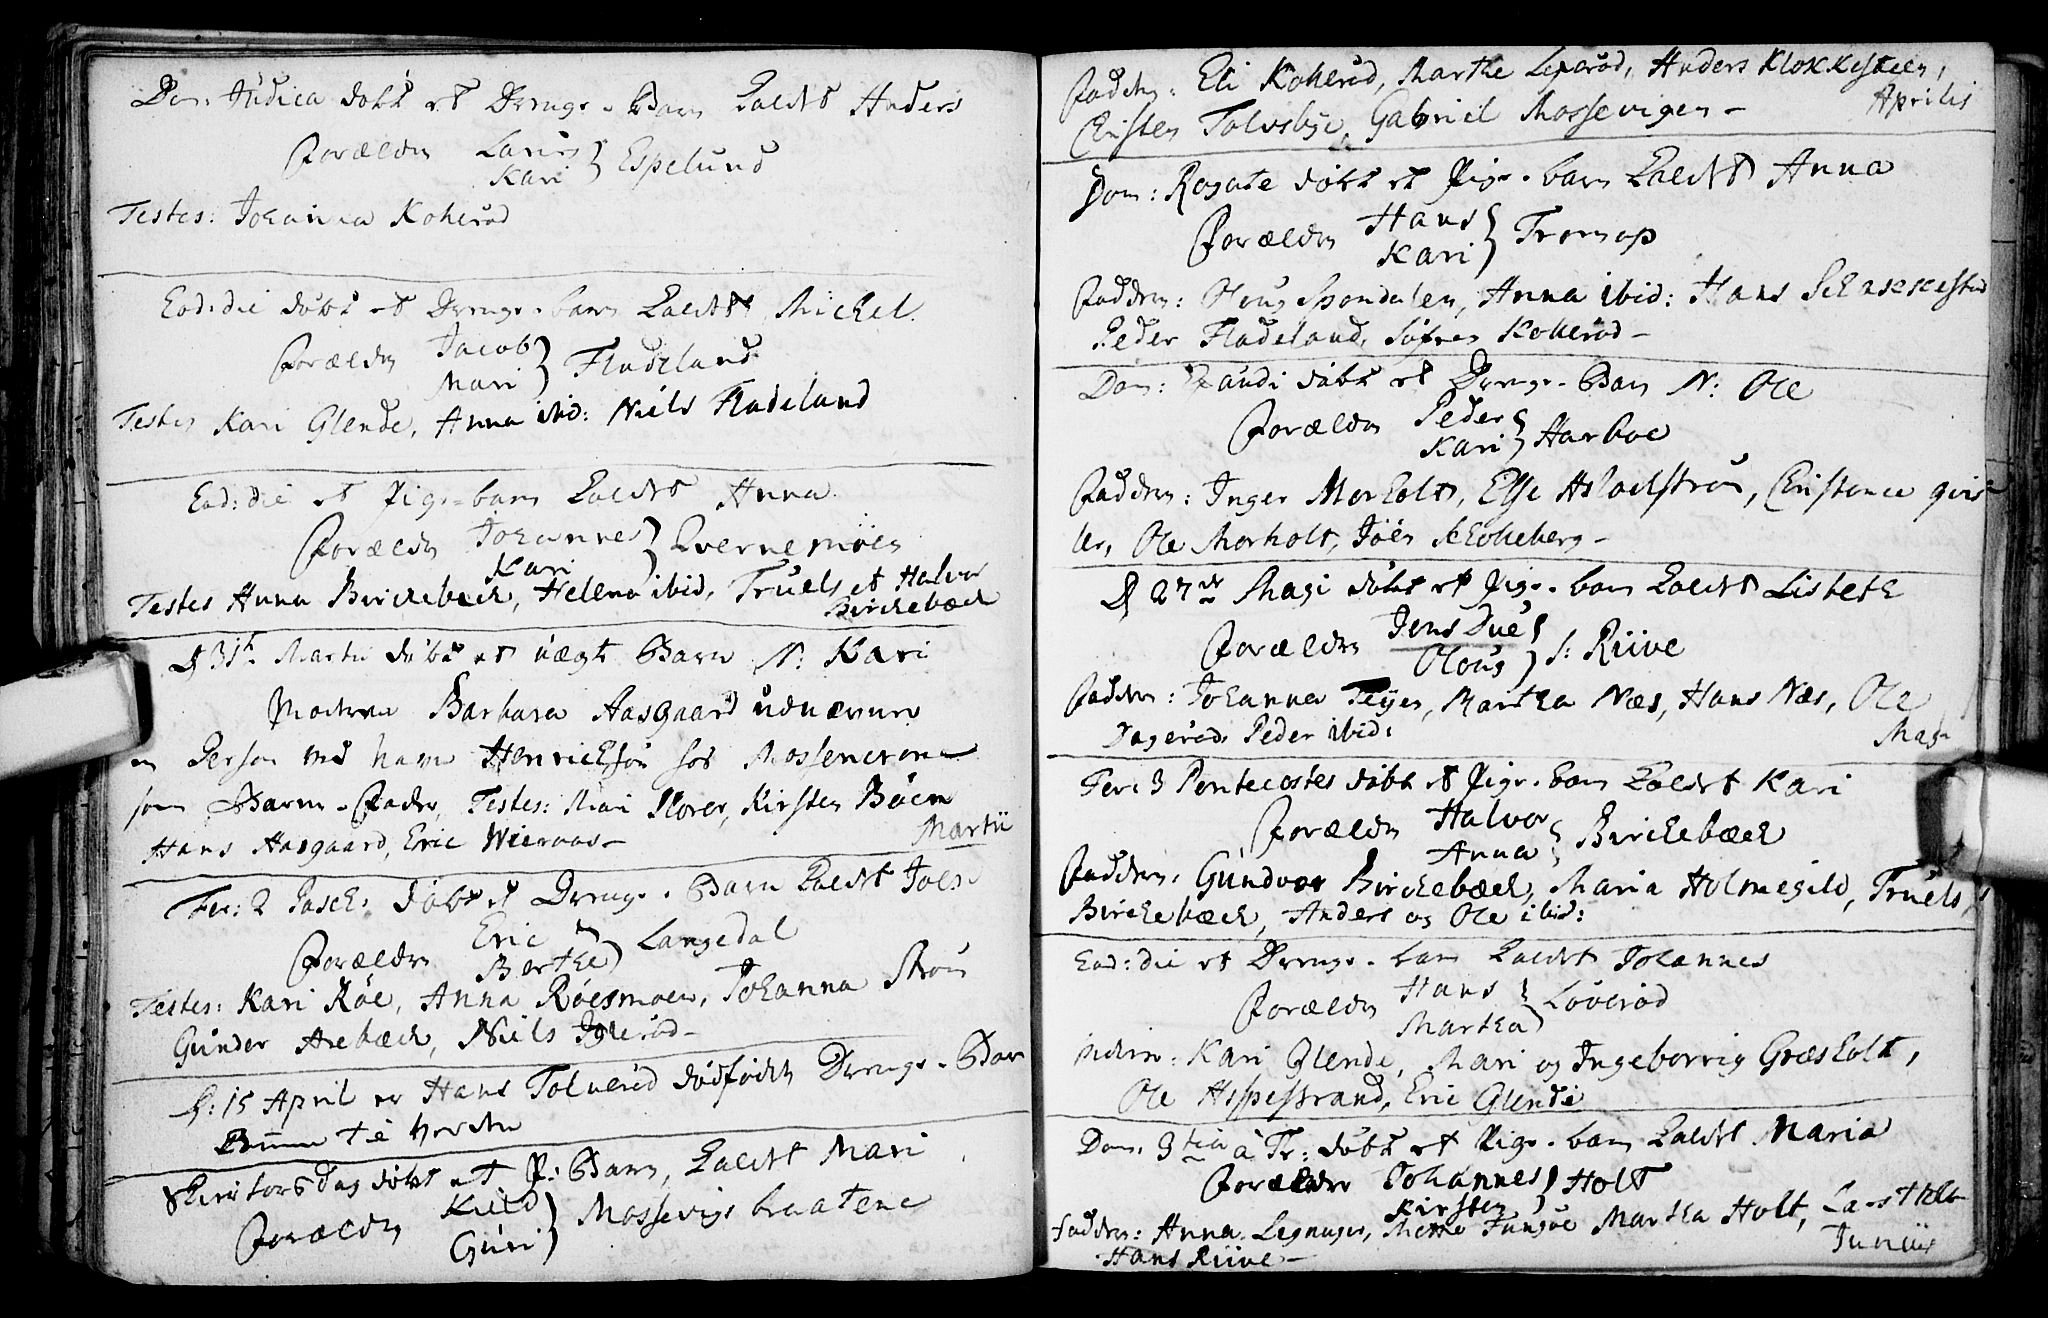 Dom: Judica døbt et Drenge-Barn kaldet Anders
Forældre Lars Kari } Espelund
Testes: Johanna Kokerød
Eod: die døbt et Drenge-barn kaldet Michel
Forældre Jacob Mari } Fladeland
Testes Kari Glende, Anna ibid: Niels Fladeland
Eod: die et Pige-barn kaldet Anna
Forældre Johannes Kari } Qvernemoen
Testes Anna Birckebæck, Helena ibid, Truels et Halvor
Birckebæck
D 31te Martii døbt et uægte Barn N: Kari
Moderen Barbara Aasgaard udnævnte
en Person ved navn Henrichsøn hos Mossencrone
som Barne-Fader, Testes: Mari Kirsten Bøen
Hans Aasgaard, Eric Wieraas-
Martii
Fer: 2 Pasch: døbt et Drenge-Barn kaldet Joen
Forældre Eric Berthe } Langedal
Testes: Kari Røe, Anna Røesmoen, Johanna Strøm
Gunder Arebæck, Niels
D: 15 April er Hans Tolverød dødfødt Drenge-Barn
døbt et P: Barn, kaldet Mari
Forældre Kield Guri } Mossevigs braatene
Faddere: Eli Kokerød, Marthe Anders Klokkesteen,
Christen Tolvsbye, Gabriel Mossevigen-
Aprilis
Dom: Rogate døbt et Pige-barn kaldet Anna
Forældre Hans Kari } Tromop
Faddere: Oloug Spondalen, Anna ibid: Hans
Peder Fladeland, Søfren Kokerød-
Dom: Exaudi døbt et Drenge-Barn N: Ole
Forældre Peder Kari } Harboe
Faddere: Inger Morholt, Else Christence qvist-
ler, Ole Morholt, Joen
D 27de Maji døbt et Pige-barn kaldet Lisbeth
Forældre Jens Due Oloug } S: Riive
Faddere: Johanna Teyer, Martha Næs, Hans Næs, Ole
Dagerød, Peder ibid:
Maji
Fer: 3 Pentecostes døbt et Pige-barn kaldet Kari
Forældre Halvor Anna } Birckebæck
Faddere: Gundvor Birckebæck, Maria Holmegild, Truels
Birckebæck, Anders og Ole ibid:
Eod: die et Drenge-barn kaldet Johannes
Forældre Hans Martha } Løverød
Kari Glende, Mari og Ingeborrig Græsholt,
Ole Aspestrand, Eric Glende
Dom: 3tia a Tr: døbt et Pige-barn kaldet Maria
Forældre Johannes Kirsten } Holt
Faddere: Anna Mette Martha Holt, Lars Holt
Hans Riive-
Junii